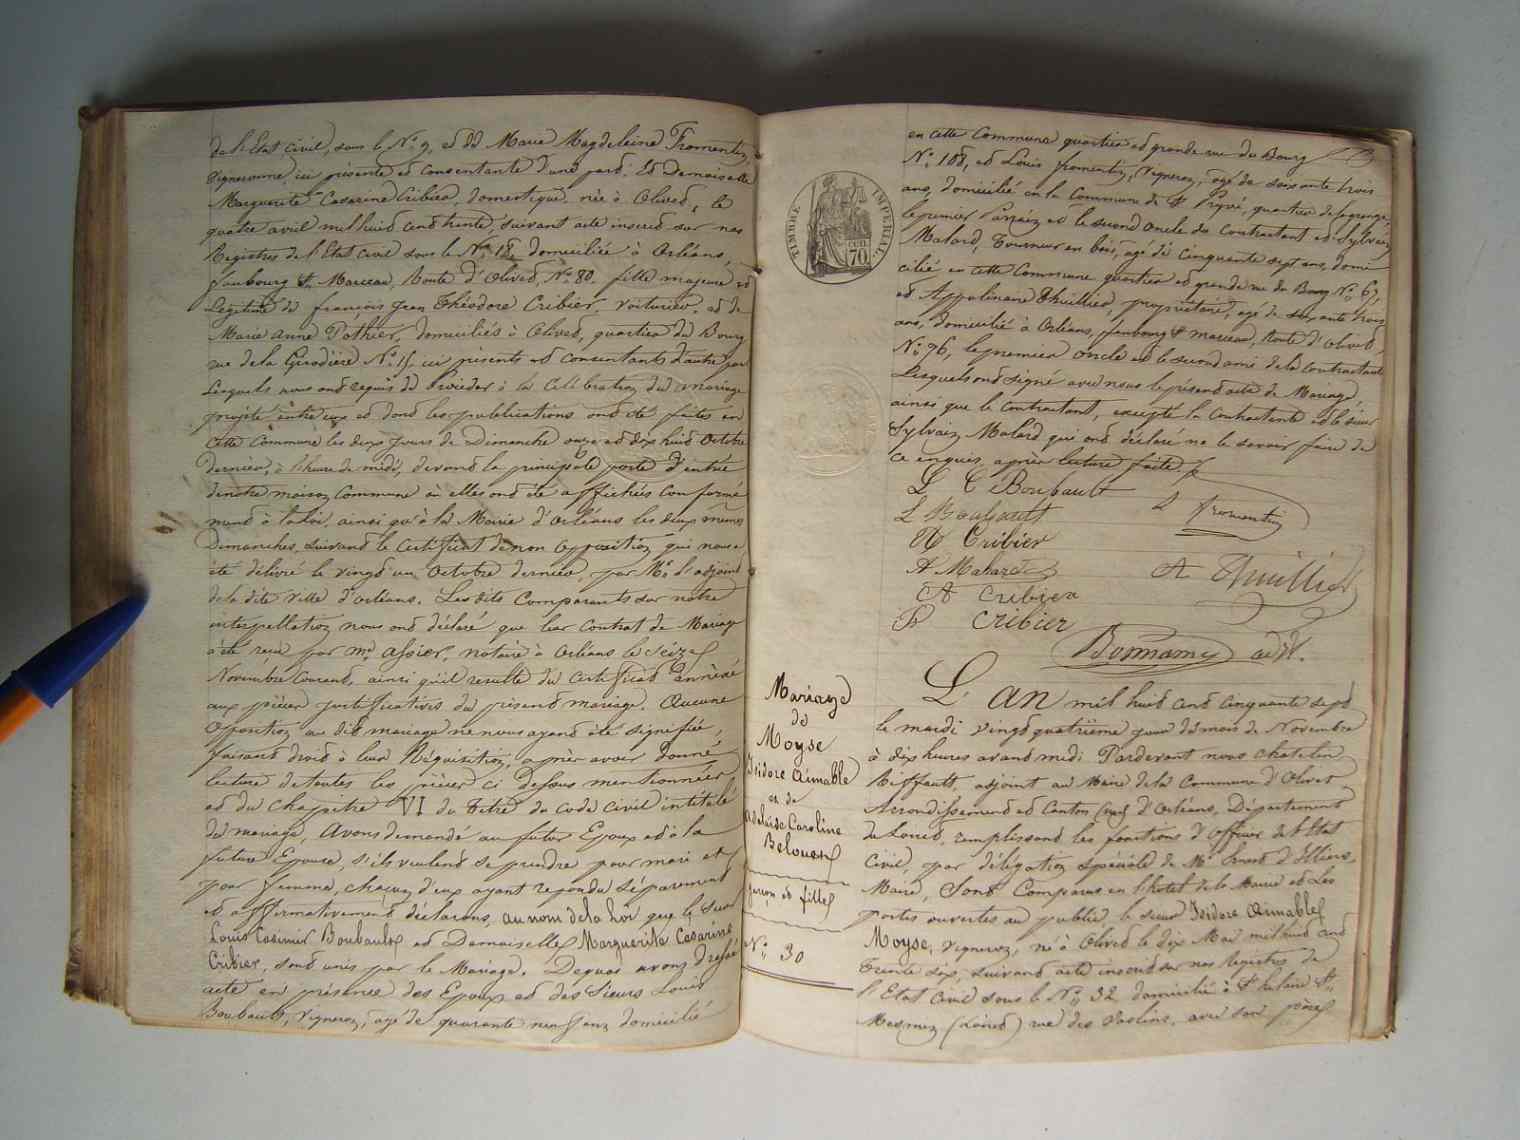 de l'Etat civil, sous le No. 9, et de Marie Magdeleine Fromentin,
vigneronne, ici présente et consentante d'une part; Et Demoiselle
Marguerite Casarine Cribier, domestique, née à Olivet, le
quatre avril mil huit cent trente, suivant acte inscrit sur nos
Registres de l'Etat Civil sous le No. 18, domiciliée à Orléans,
faubourg St. Marceau, Route d'Olivet, No. 80. fille majeure et
Légitime de françois Jean Théodore Cribier, voiturier, et de
Marie Anne Pothier, domiciliés à Olivet, quartier du Bourg
rue de la Girodière No. 15, ici présents et Consentants d'autre part
Lesquels nous ont requis de Procéder à la Célébration du mariage
projeté entre eux et dont les publications ont été faites en
Cette Commune les deux jours de Dimanche onze et dix huit Octobre
dernier, à l'heure de midi, devant la principale porte d'entrée
de notre maison Commune où elles ont été affichées conformé
ment à la Loi, ainsi qu'à la Mairie d'Orléans les deux mêmes
Dimanches, suivant le Certificat de non opposition qui nous a
été délivré le vingt un Octobre dernier, par Mr. l'adjoint
de la dite ville d'Orléans. Les dits Comparants sur notre
interpellation nous ont déclaré que leur Contrat de Mariage
a été reçu par me. Assier, notaire à Orléans le seize
Novembre Courant, ainsi qu'il resulte du Certificat annexé
aux pièces justificatives du présent mariage. Aucune
opposition au dit mariage ne nous ayant été signifiée,
faisant droit à leur Réquisition, après avoir donné
lecture de toutes les pièces ci dessus mentionnées
et du chapitre VI du Titre du Code Civil intitulé
du mariage, Avons demandé au futur Epoux et à la
future Epouse, s'ils veulent se prendre pour mari et
pour femme, chacun d'eux ayant repondu séparement
et affirmativement déclarons, au nom de la loi que le sieur
Louis Casimir Boubault et Demoiselle Marguerite Casarine
Cribier, sont unis par le Mariage. Dequoi avons dressé
acte en présence des Epoux et des Sieurs Louis
Boubault, Vigneron, agé de quarante neuf ans domicilié
TIMBRE IMPÉRIAL
70
en cette Commune quartier et grande rue du Bourg
No. 168, et Louis fromentin, Vigneron, agé de soixante trois
ans, domicilié en la Commune de St Pryvé, quartier de
le premier Parrain et le second oncle du Contractant et Sylvain
Malard, Tourneur en bois, agé de cinquante sept ans, domi
cilié en cette Commune, quartier et grande rue du Bourg No. 67,
et Appolinaire Thuillier, propriétaire, agé de soixante trois
ans, domicilié à Orléans, faubourg St marceau, Route d'Olivet,
No. 76, le premier oncle et le second ami de la contractante
Lesquels ont signé avec nous le présent acte de Mariage,
ainsi que le Contractant, excepté la Contractante et le sieur
Sylvain Malard qui ont déclaré ne le savoir faire de
ce enquis, après lecture faite.
L C Boubault
L fromentin
L Boubault
Cribier
A Malard
A Thuillier
A Cribier
Cribier
Bonnamy adt.
Mariage
de
Moyse
Isidore Aimable
et de
Adelaide Caroline
Belouet
garçon et fille
No. 30
L'AN mil huit cent cinquante sept
le mardi vingt quatrième jour du mois de Novembre
à dix heures avant midi Pardevant nous Chatelin
Riffault, adjoint au Maire de la Commune d'Olivet,
Arrondissement et Canton (sud) d'Orléans, Département
du Loiret, remplissant les fonctions d'officier de l'Etat
Civil, par délégation spéciale de Mr. d'Illiers,
Maire, Sont Comparus en l'hotel de la Mairie et Les
portes ouvertes au public le sieur Isidore Aimable
Moyse, vigneron, né à Olivet le dix Mai mil huit cent
Trente six, suivant acte inscrit sur nos Registres de
l'Etat Civil sous le No. 32 domicilié à St hilaire St.
Mesmin (Loiret) rue des avec son père